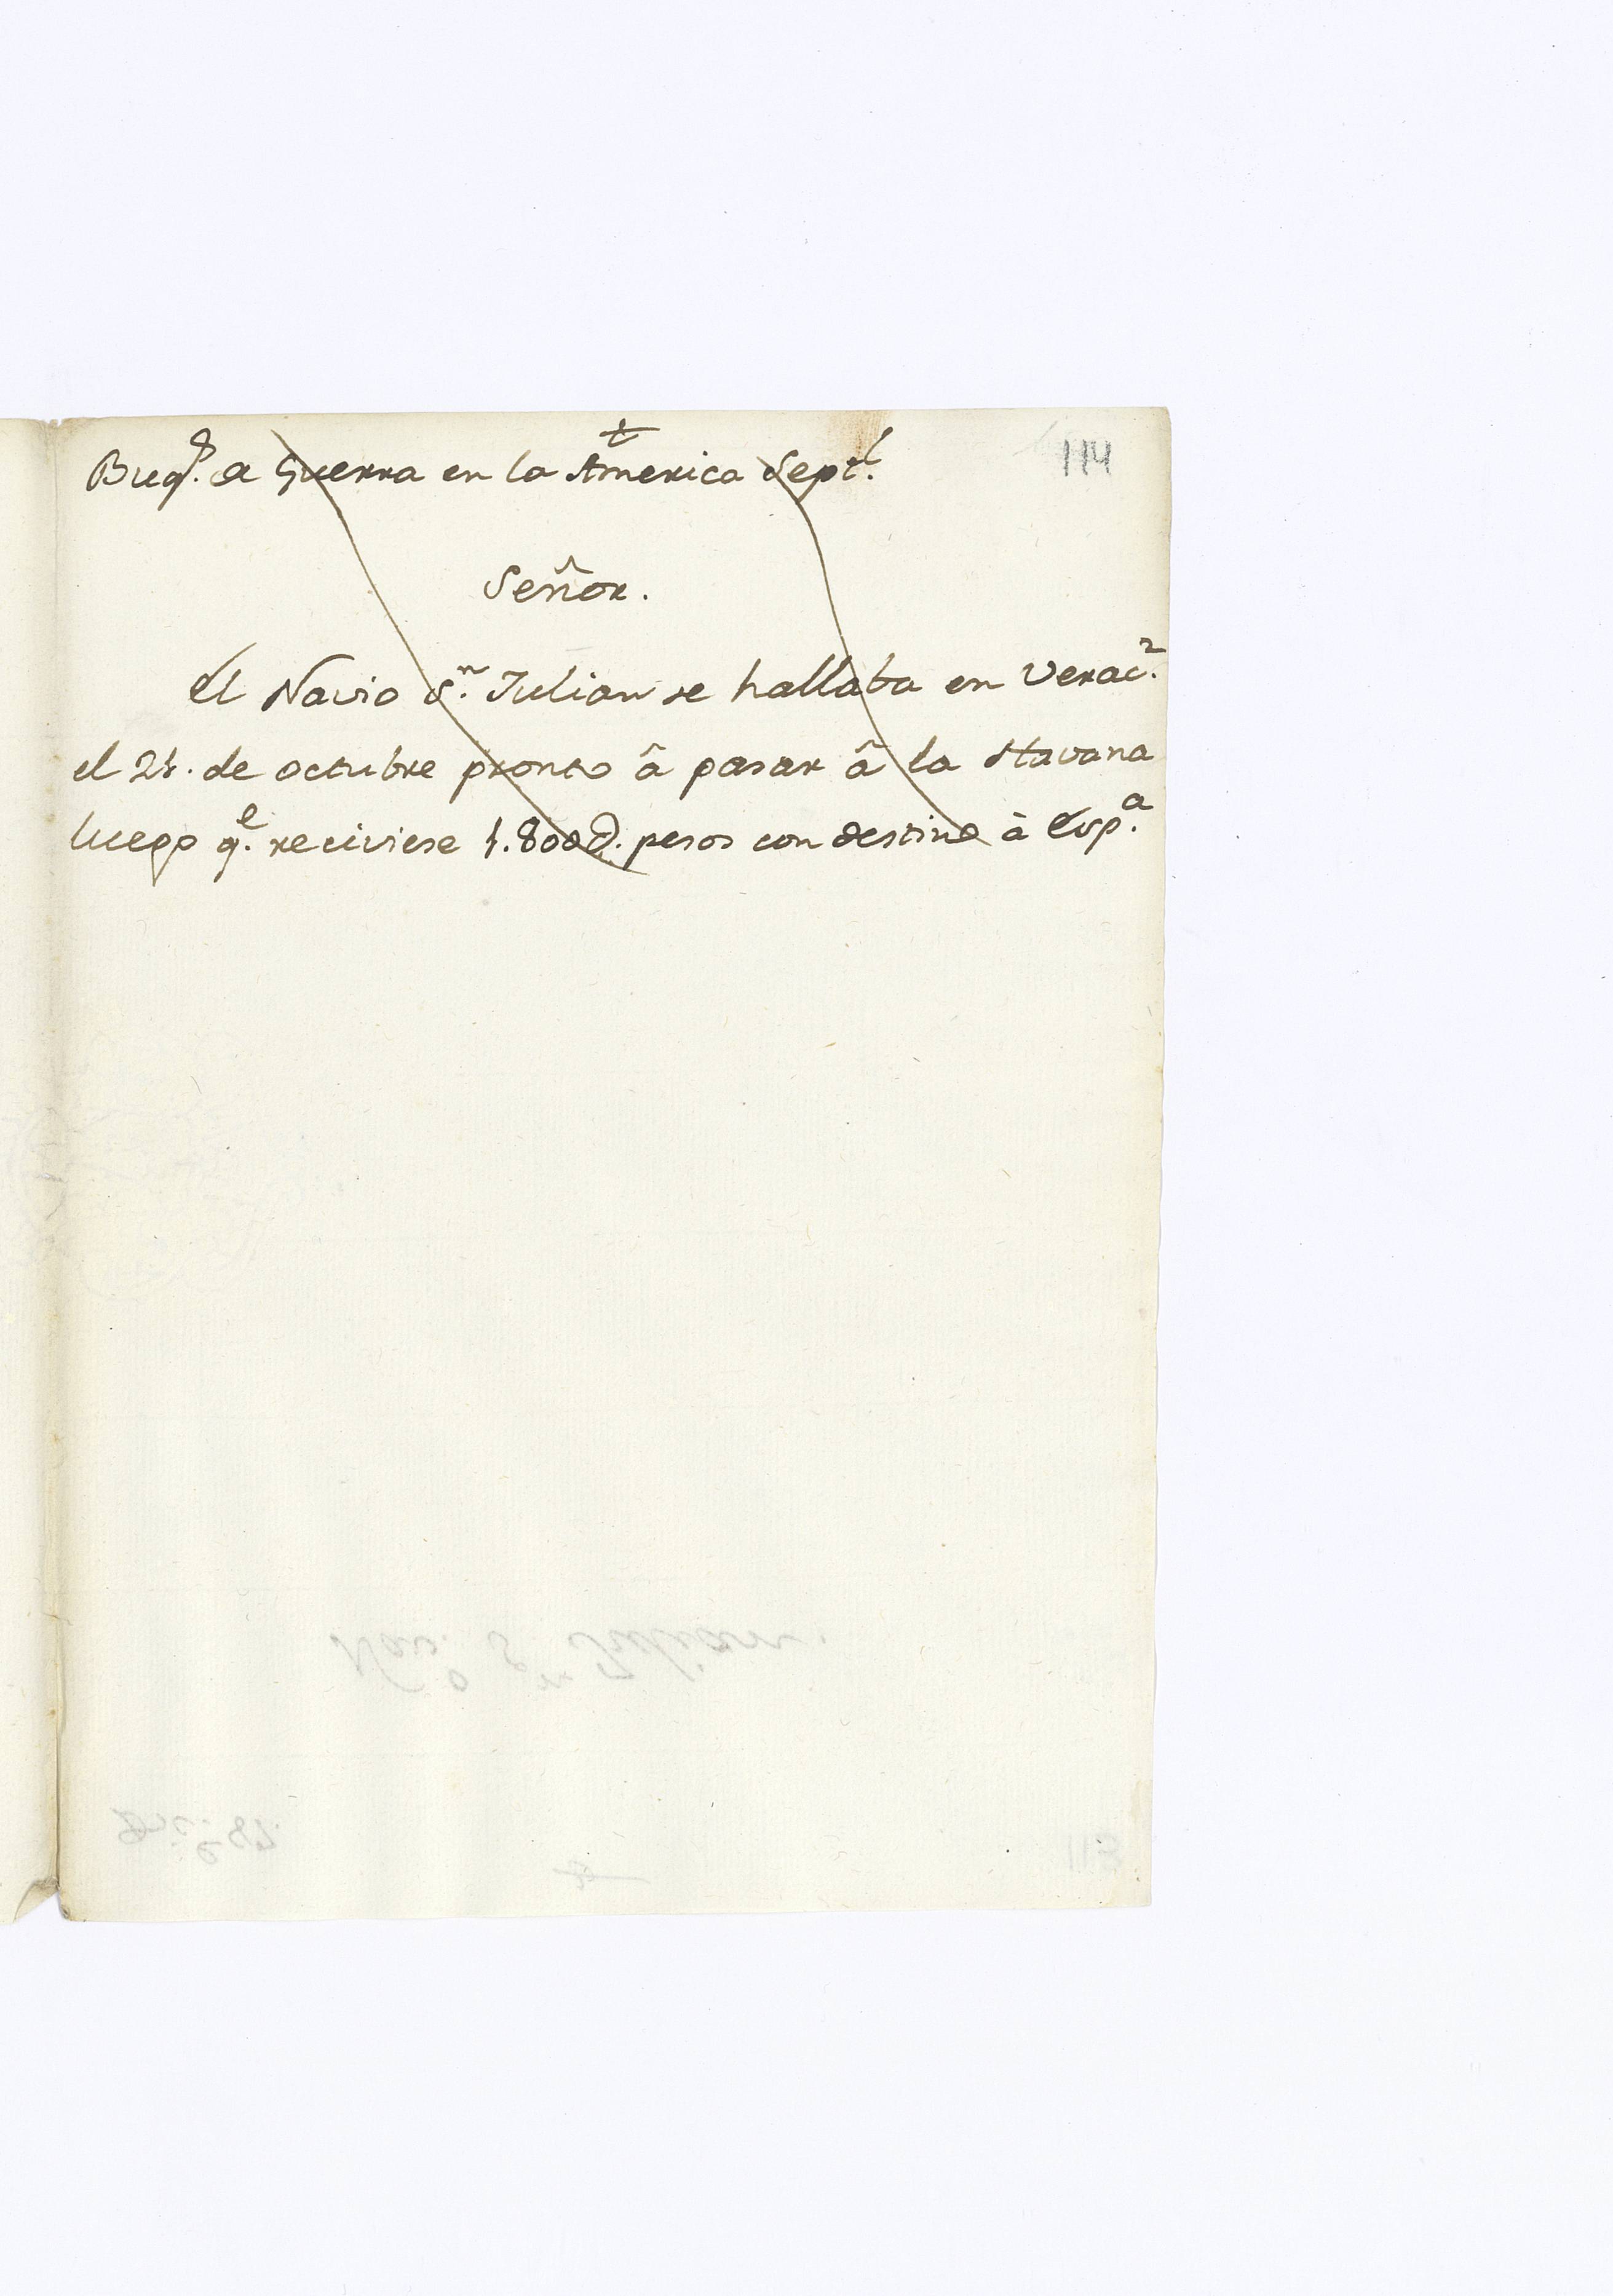 †
Buq.^s de Guerra en la America Sept.^l
114
Señor.
El Navio S.^n Julian se hallaba en Verac.^z
el 21. de octubre pronto â pasar â la Havana
luego q.^e reciviese 1.800 D. pesos con destino à Esp.^a